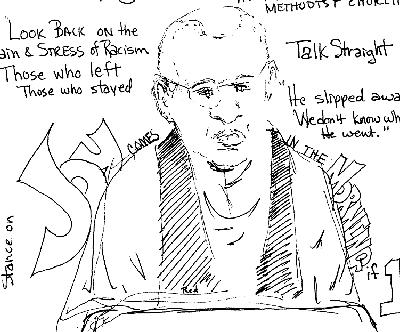 METHODIST CHURCH
"LOOK BACK ON the
& STRESS of Racism
Those who left
Those who stayed
Talk Straight
"He slipped
We don't know
He went."
JOY
COMES
IN THE
MORNING
if
Stance on
Red